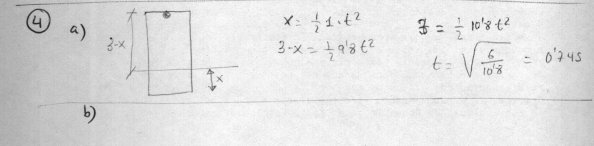 4 a) 3-x x x = 1/2 1 · t² 3 = 1/2 10'8 t²
3-x = 1/2 9'8 t² t = √(6/10'8) = 0'74s
b)